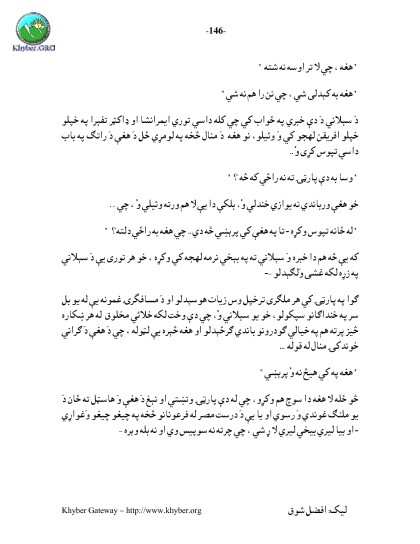 -146-
Khyber.ORG
" هغه ، چي لا تر اوسه نه شته "
" هغه به کېدلی شي ، چي نن را هم نه شي "
دَ سېلاني دَ دې خبرې په ځواب کي چي کله داسي تورې ايمرانشا او ډاکټر تفيرا په خپلو
خپلو افريقن لهجو کي وَ وئيلو ، نو هغه دَ منال څخه په لومړي ځل دَ هغې دَ راتګ په باب
داسي تپوس کړی وُ..
" وسا به دې پارټۍ ته نه راځي که څه ؟ "
خو هغې ورباندي نه يوازي خندلي وُ، بلکې دا يې لا هم ورته وئيلي وُ ، چي ..
" له ځانه تپوس وکړه - تا په هغې کي پرېښي څه دي.. چي هغه به راځي دلته؟ "
که يې څه هم دا خبره وَ سېلاني ته په ښخې نرمه لهجه کي وکړه ، خو هر توری يې دَ سېلاني
په زړه لکه غشی وَ لګېدلو --
ګوا په پارټۍ کي هر ملګری تر خپل وس زيات هوسېدلو او دَ مسافرۍ غمونه يې له يو بل
سره په خنداګانو سپکولو ، خو يو سېلاني وُ، چي دې وخت لکه خلائي مخلوق له هر ښکاره
څيز پرته هم په خيالي ګودرونو باندي ګرځېدلو او هغه څېره يې لټوله ، چي دَ هغې دَ ګرانۍ
خوند کۍ منال له قوله ..
" هغه په کي هيڅ نه وُ پرېښي "
خو ځله لا هغه دا سوچ هم وکړو ، چي له دې پارټۍ وتښتي او نېغ دَ هغې وَ هاسټل ته ځان دَ
يو ملنګ غوندي وَ رسوي او يا يې دَ درست مصر له فرعونانو څخه په چيغو چيغو وَ غواړي
- او بيا ليري بيخي ليري لاړ شي ، چي چرته نه سوېيس وي او نه بله ويره -
Khyber Gateway – http://www.khyber.org
ليک: افضل شوق